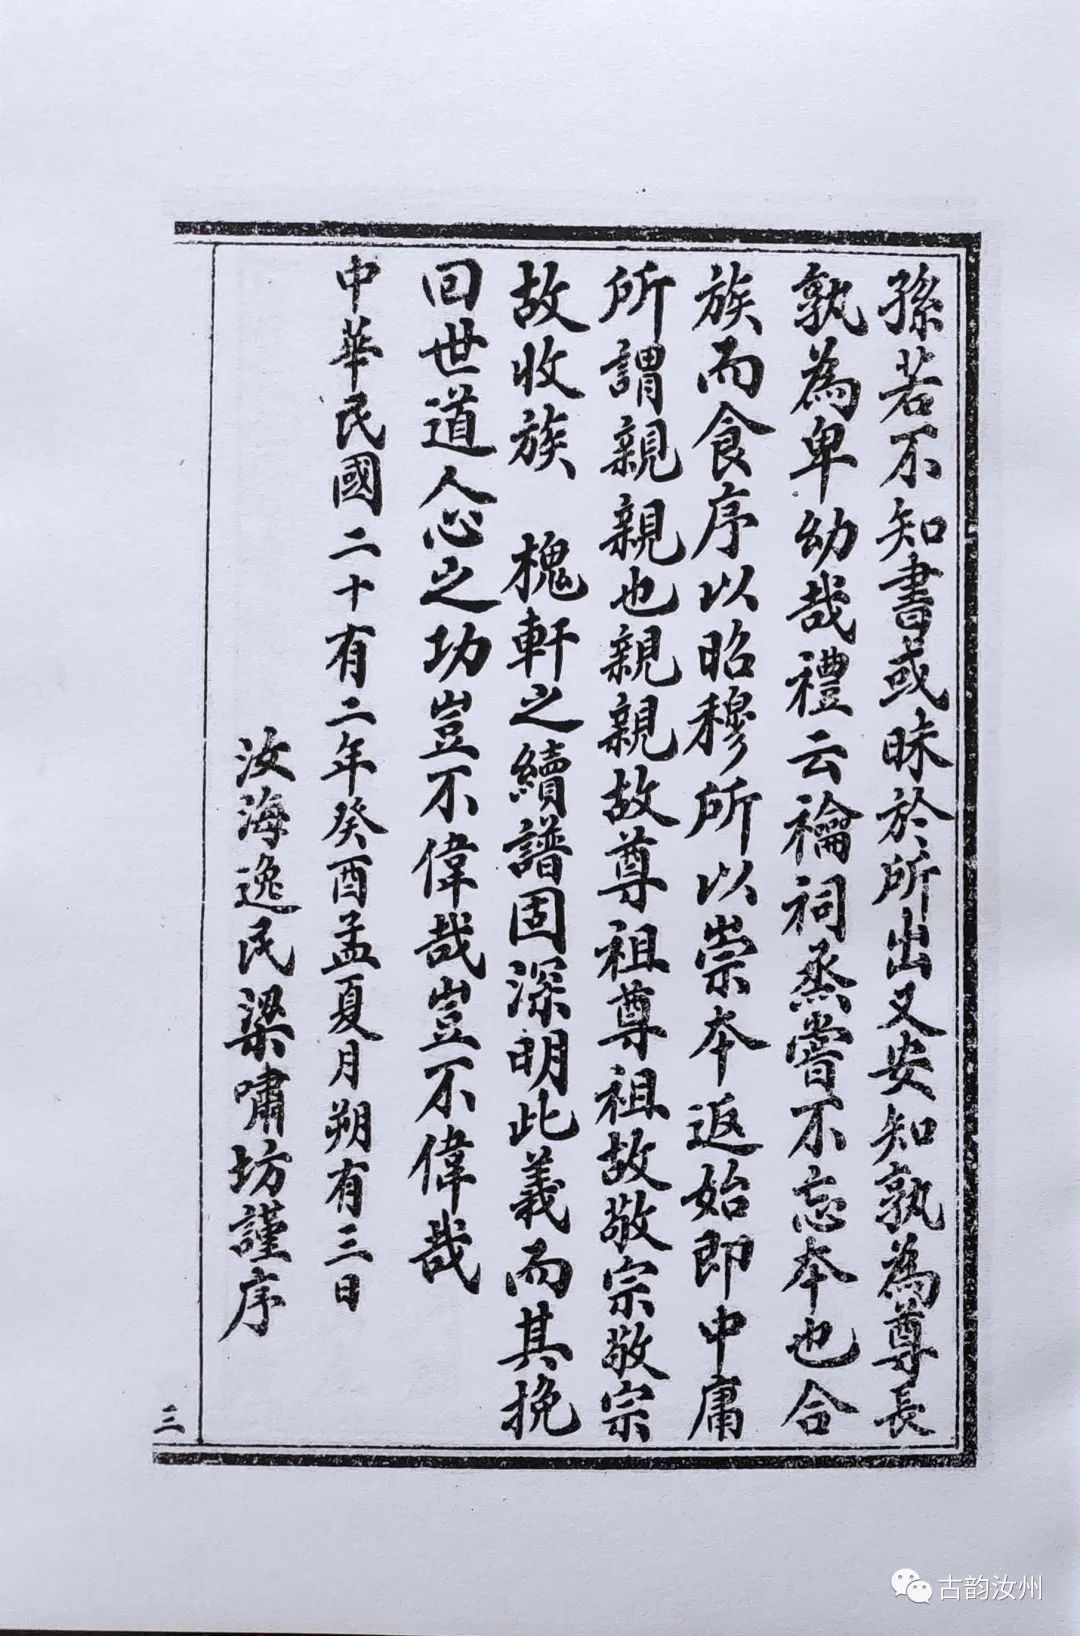 孫若不知書或昧於所出又安知孰為尊長
孰為卑幼哉禮云禴祠烝嘗不忘本也合
族而食序以昭穆所以崇本返始即中庸
所謂親親也親親故尊祖尊祖故敬宗敬宗
故收族　槐軒之續譜固深明此義而其挽
回世道人心之功豈不偉哉豈不偉哉
中華民國二十有二年癸酉孟夏月朔有三日
汝海逸民梁嘯坊謹序
三
古韵汝州